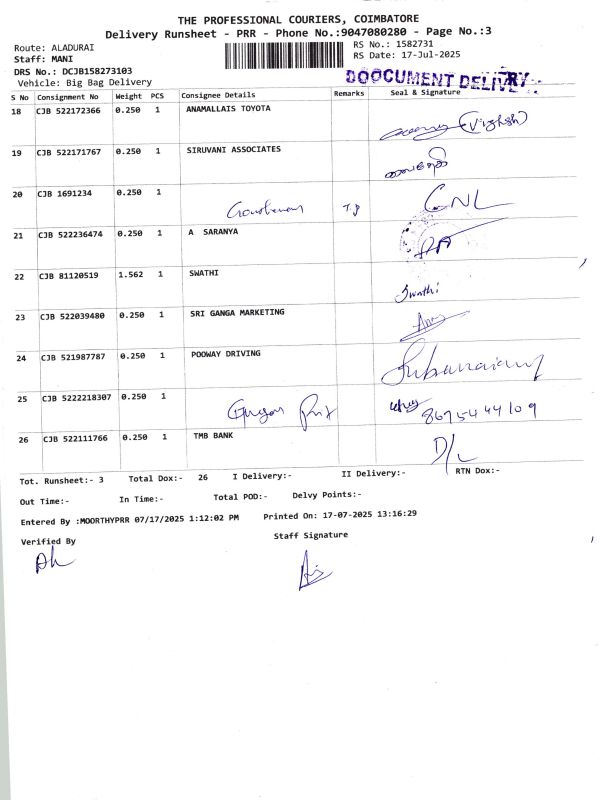 THE PROFESSIONAL COURIERS, COIMBATORE
Delivery Runsheet - PRR - Phone No.:9047080280 - Page No.:3
Route: ALADURAI
RS No.: 1582731
Staff: MANI
RS Date: 17-Jul-2025
DRS No.: DCJB158273103
Vehicle: Big Bag Delivery
DOOCUMENT DELIVERY
S No Consignment No Weight PCS Consignee Details Remarks Seal & Signature
18 CJB 522172366 0.250 1 ANAMALLAIS TOYOTA
19 CJB 522171767 0.250 1 SIRUVANI ASSOCIATES
20 CJB 1691234 0.250 1
GNL
21 CJB 522236474 0.250 1 A SARANYA
22 CJB 81120519 1.562 1 SWATHI
Swathi
23 CJB 522039480 0.250 1 SRI GANGA MARKETING
24 CJB 521987787 0.250 1 POOWAY DRIVING
25 CJB 5222218307 0.250 1
8675444109
26 CJB 522111766 0.250 1 TMB BANK
D/L
Tot. Runsheet:- 3 Total Dox:- 26 I Delivery:- II Delivery:- RTN Dox:-
Out Time:- In Time:- Total POD:- Delvy Points:-
Entered By :MOORTHYPRR 07/17/2025 1:12:02 PM Printed On: 17-07-2025 13:16:29
Verified By Staff Signature